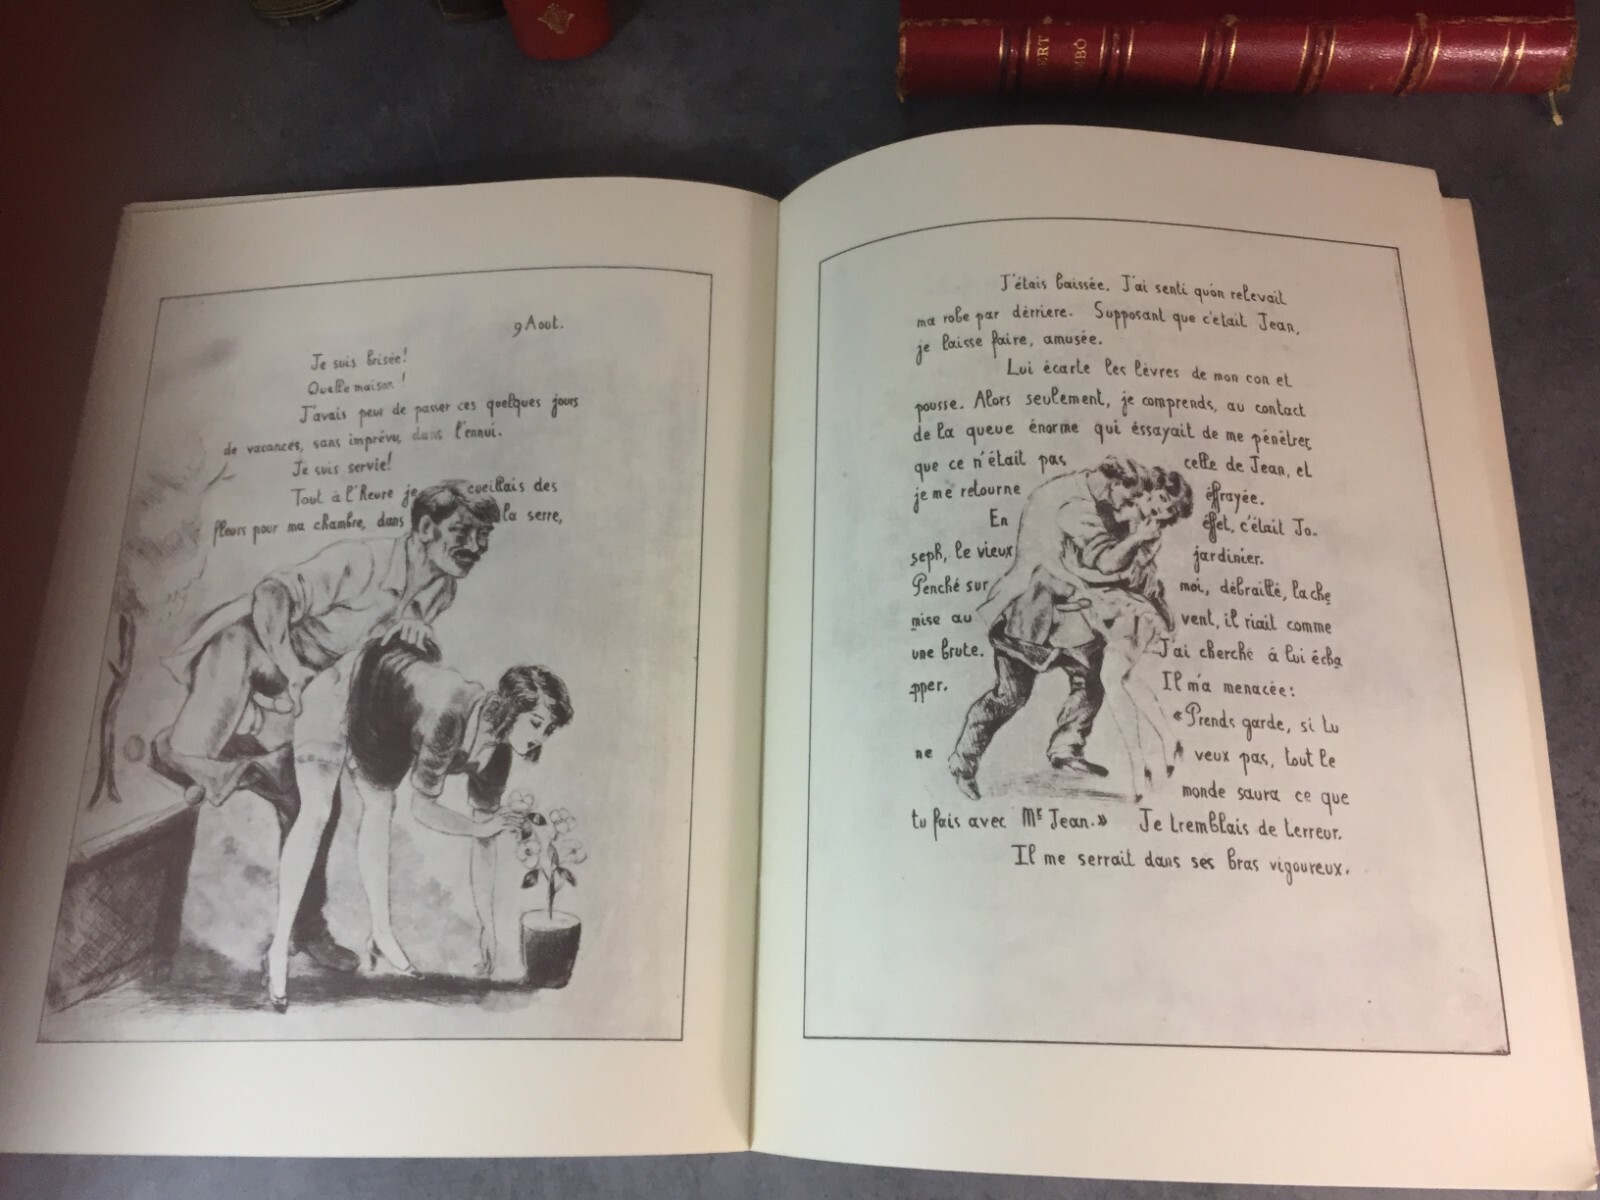 9 Aout.
Je suis brisée!
Quelle maison!
J'avais peur de passer ces quelques jours
de vacances, sans imprévu, dans l'ennui.
Je suis servie!
Tout à l'heure je cueillais des
fleurs pour ma chambre, dans la serre,
J'étais baissée. J'ai senti qu'on relevait
ma robe par dérriere. Supposant que c'était Jean,
je laisse faire, amusée.
Lui écarte les lèvres de mon con et
pousse. Alors seulement, je comprends, au contact
de la queue énorme qui éssayait de me pénétrer,
que ce n'était pas celle de Jean, et
je me retourne éffrayée.
En éffet, c'était Jo-
seph, le vieux jardinier.
Penché sur moi, débraillé, la che
mise au vent, il riait comme
une brute. J'ai cherché à lui écha
pper. Il m'a menacée:
«Prends garde, si tu
ne veux pas, tout le
monde saura ce que
tu fais avec Mr Jean.» Je tremblais de terreur.
Il me serrait dans ses bras vigoureux.
ERT
MBÔ